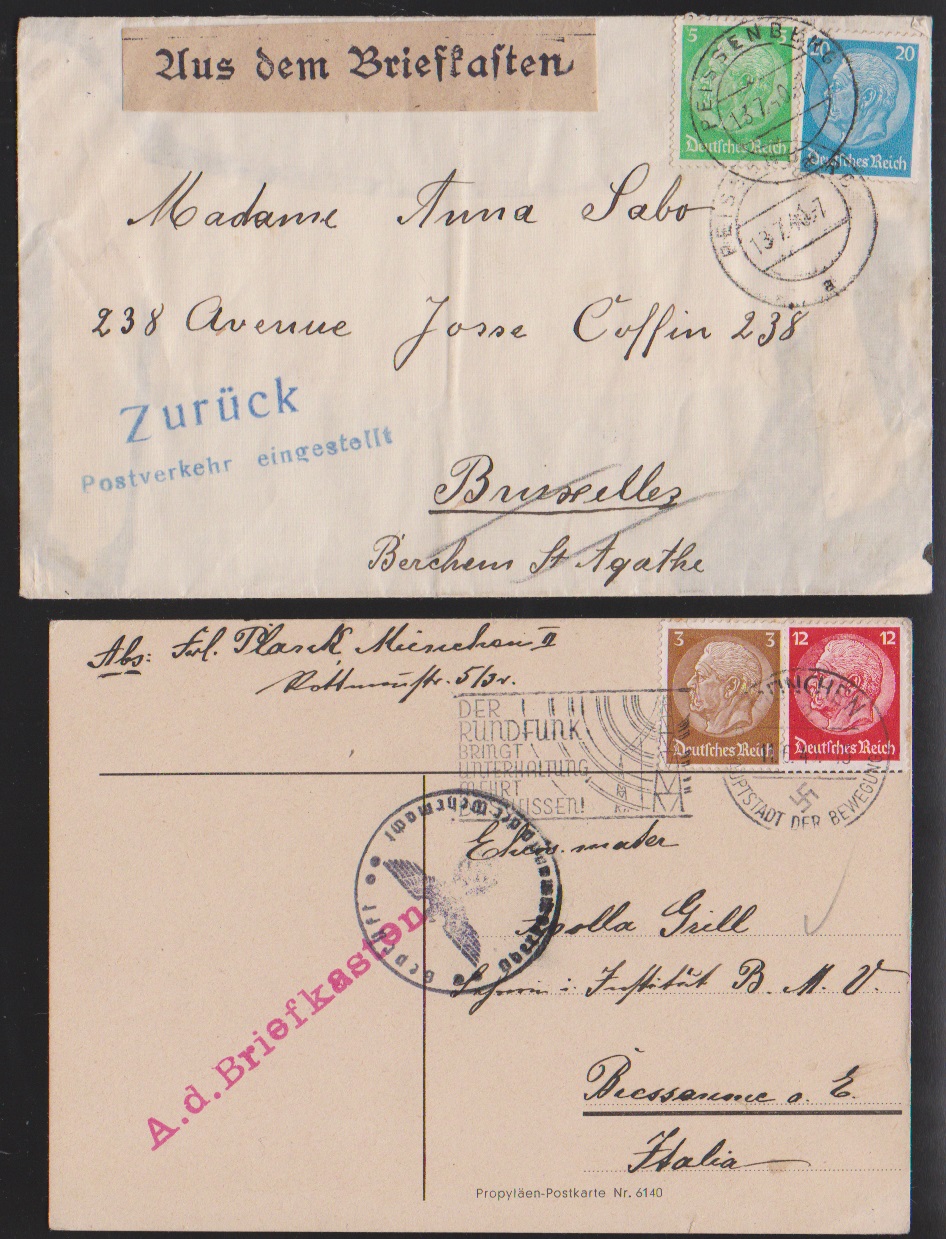 Aus dem Briefkasten
5
20
Deutsches Reich
Deutsches Reich
PEISSENBERG
13.7.40.-7
PEISSENBERG
13.7.40.-7
a
Madame Anna Sabo
238 Avenue Josse Goffin 238
Zurück
Postverkehr eingestellt
Bruxelles
Berchem St Agathe
Abs: Frl. Planck München II
5/3r.
3 3
12 12
Deutsches Reich
Deutsches Reich
DER
RUNDFUNK
BRINGT
UNTERHALTUNG
MEHRT
DAS WISSEN!
MÜNCHEN
HAUPTSTADT DER BEWEGUNG
Geprüft
Oberkommando der Wehrmacht
Ehrw. mater
Grill
Institut B. M. V.
A.d.Briefkasten
a. E.
Italia
Propyläen-Postkarte Nr. 6140